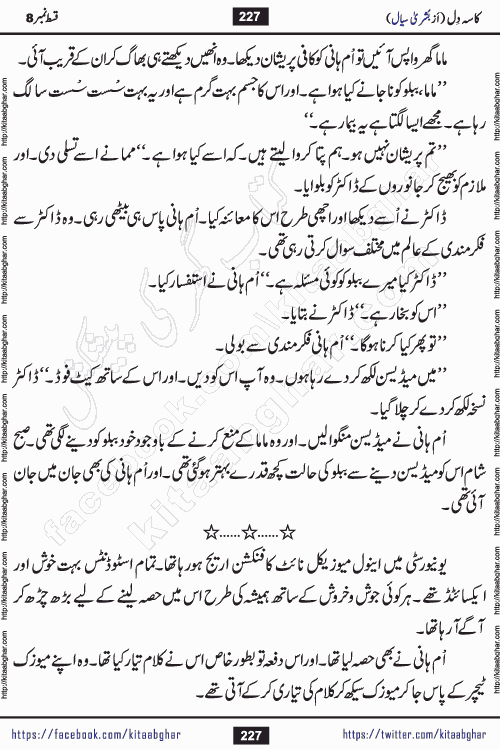 کاسہ دل (از بشریٰ سیال)
227
قسط نمبر 8
ماما گھر واپس آئیں تو اُم ہانی کو کافی پریشان دیکھا۔ وہ انھیں دیکھتے ہی بھاگ کر ان کے قریب آئی۔
’’ماما، ببلو کو نا جانے کیا ہوا ہے۔ اور اس کا جسم بہت گرم ہے اور یہ بہت سُست سُست سا لگ
رہا ہے۔ مجھے ایسا لگتا ہے یہ بیمار ہے۔‘‘
’’تم پریشان نہیں ہو۔ ہم پتا کروا لیتے ہیں۔ کہ اسے کیا ہوا ہے۔‘‘ ممانے اسے تسلی دی۔ اور
ملازم کو بھیج کر جانوروں کے ڈاکٹر کو بلوایا۔
ڈاکٹر نے اُسے دیکھا اور اچھی طرح اس کا معائنہ کیا۔ اُم ہانی پاس ہی بیٹھی رہی۔ وہ ڈاکٹر سے
فکر مندی کے عالم میں مختلف سوال کرتی رہی تھی۔
’’ڈاکٹر کیا میرے ببلو کو کوئی مسئلہ ہے۔‘‘ اُم ہانی نے استفسار کیا۔
’’اس کو بخار ہے۔‘‘ ڈاکٹر نے بتایا۔
’’تو پھر کیا کرنا ہوگا۔‘‘ اُم ہانی فکر مندی سے بولی۔
’’میں میڈیسن لکھ کر دے رہا ہوں۔ وہ آپ اس کو دیں۔ اور اس کے ساتھ کیٹ فوڈ۔‘‘ ڈاکٹر
نسخہ لکھ کر دے کر چلا گیا۔
اُم ہانی نے میڈیسن منگوا لیں۔ اور وہ ماما کے منع کرنے کے باوجود خود ببلو کو دینے لگی تھی۔ صبح
شام اس کو میڈیسن دینے سے ببلو کی حالت کچھ قدرے بہتر ہو گئی تھی۔ اور اُم ہانی کی بھی جان میں جان
آئی تھی۔
☆......☆......☆
یونیورسٹی میں اینول میوزیکل نائٹ کا فنکشن اریج ہو رہا تھا۔ تمام اسٹوڈنٹس بہت خوش اور
ایکسائٹڈ تھے۔ ہر کوئی جوش و خروش کے ساتھ ہمیشہ کی طرح اس میں حصہ لینے کے لیے بڑھ چڑھ کر
آگے آ رہا تھا۔
اُم ہانی نے بھی حصہ لیا تھا۔ اور اس دفعہ تو بطور خاص اس نے کلام تیار کیا تھا۔ وہ اپنے میوزک
ٹیچر کے پاس جا کر میوزک سیکھ کر کلام کی تیاری کر کے آتی تھے۔
https://facebook.com/kitaabghar
227
https://twitter.com/kitaabghar
http://kitaabghar.com